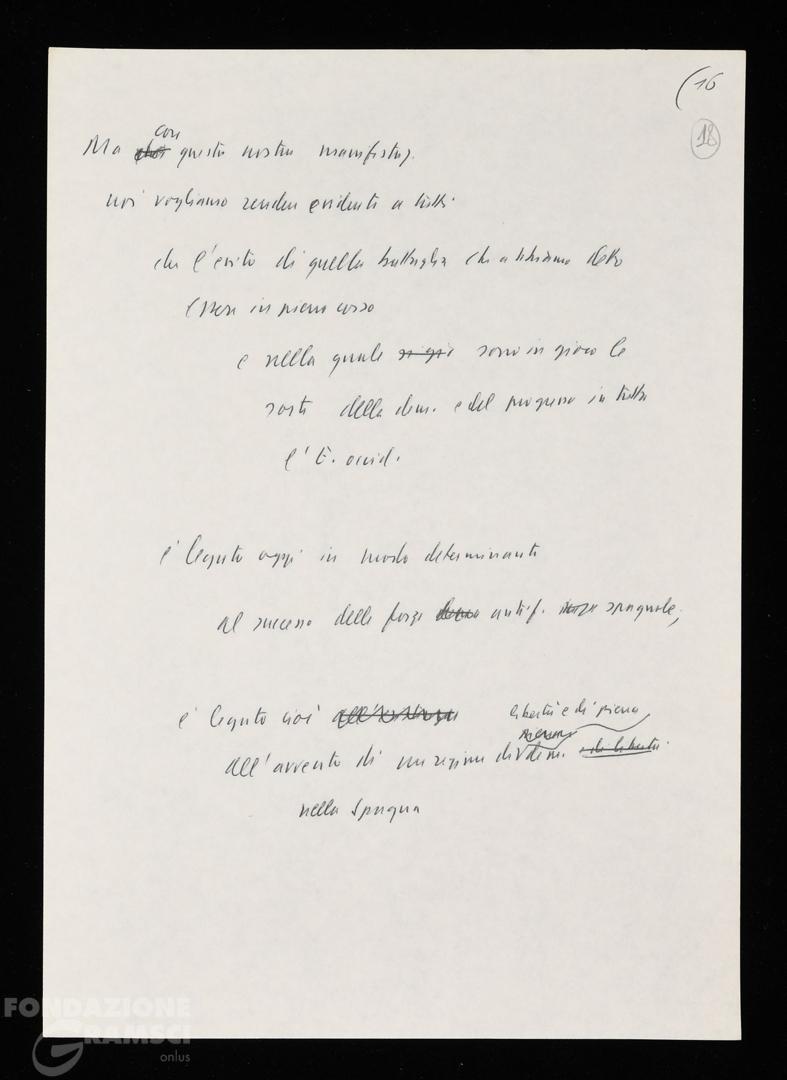 (16
18
Ma con questa nostra manifestaz.
noi vogliamo rendere evidente a tutti
che l'esito di quella battaglia che abbiamo detto
essere in pieno corso
e nella quale si gio sono in gioco le
sorti della dem. e del progresso in tutta
l'E. occid.
è legato oggi in modo determinante
al successo delle forze antif. spagnole,
è legato cioè all'esistenza libertà e di piena
all'avvento di un regime di piena dem. e di libertà
nella Spagna
FONDAZIONE
GRAMSCI
onlus